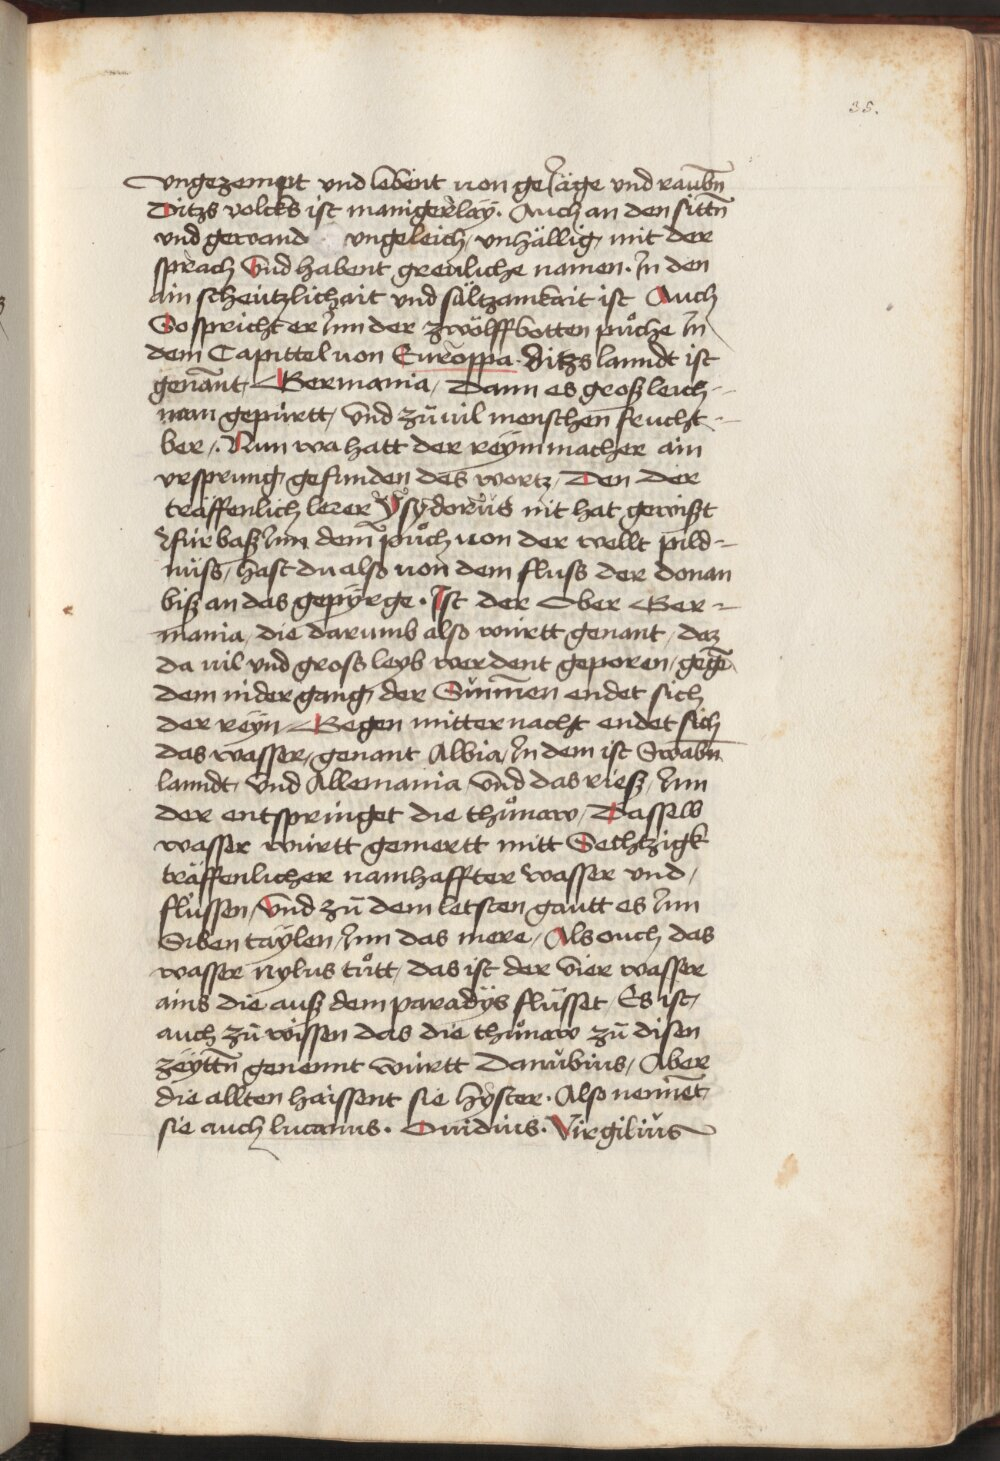 35.
vngezempt vnd lebent von geJäge vnd raubn̄
Ditzs volcks ist manigerlay. Auch an den sittn̄
vnd gewand vngeleich, vnhällig, mit der
sprach Vnd habent greuliche namen. In den
ain scheützlichait vnd sältzamkait ist Auch
So spricht er Jnn der zwölffbotten půche Jn
dem Capittel von Europpa. Ditzs lanndt ist
genānt, Germania, Dann es groß leich-
nam gepürtt, vnd zū vil menschen frucht-
ber,. Nun wa hatt der reymmacher ain
vrsprung, gefunden des wortz, Den der
träffenlich lerer Ysydorus nit hat gewißt
fürbaß Jnn dem půch von der wellt pild-
nüss, hast du also von dem fluss der donau
biß an das gepyrge. Ist der Ober Ger-
mania, die darumb also württ genant, daz
da vil vnd gross leyb werdent geporen, gegē
dem nider gang, der Sūnnen endet sich
der reyn Gegen mitternacht endet sich
das wasser, genant Albia, Jn dem ist Swabn̄
lanndt, vnd Allemania vnd das rieß, Jnn
der entspringet die thůnaw, Dasselb
wasser württ gemertt mitt Sechtzigk
träffenlicher namhaffter wasser vnd,
flüssen, Vnd zū dem letsten gautt es Jnn
Siben taylen, Jnn das mere, Als ouch das
wasser nylus tůtt, das ist der vier wasser
ains die auß dem paradys flüsset, Es ist,
auch zū wissen das die thůnaw zū disen
zeyttn̄ genennt württ Danubius, Aber
die allten haissent sie Hyster. Also nennēt,
sie auch lucanus. Ouidius. Virgilius